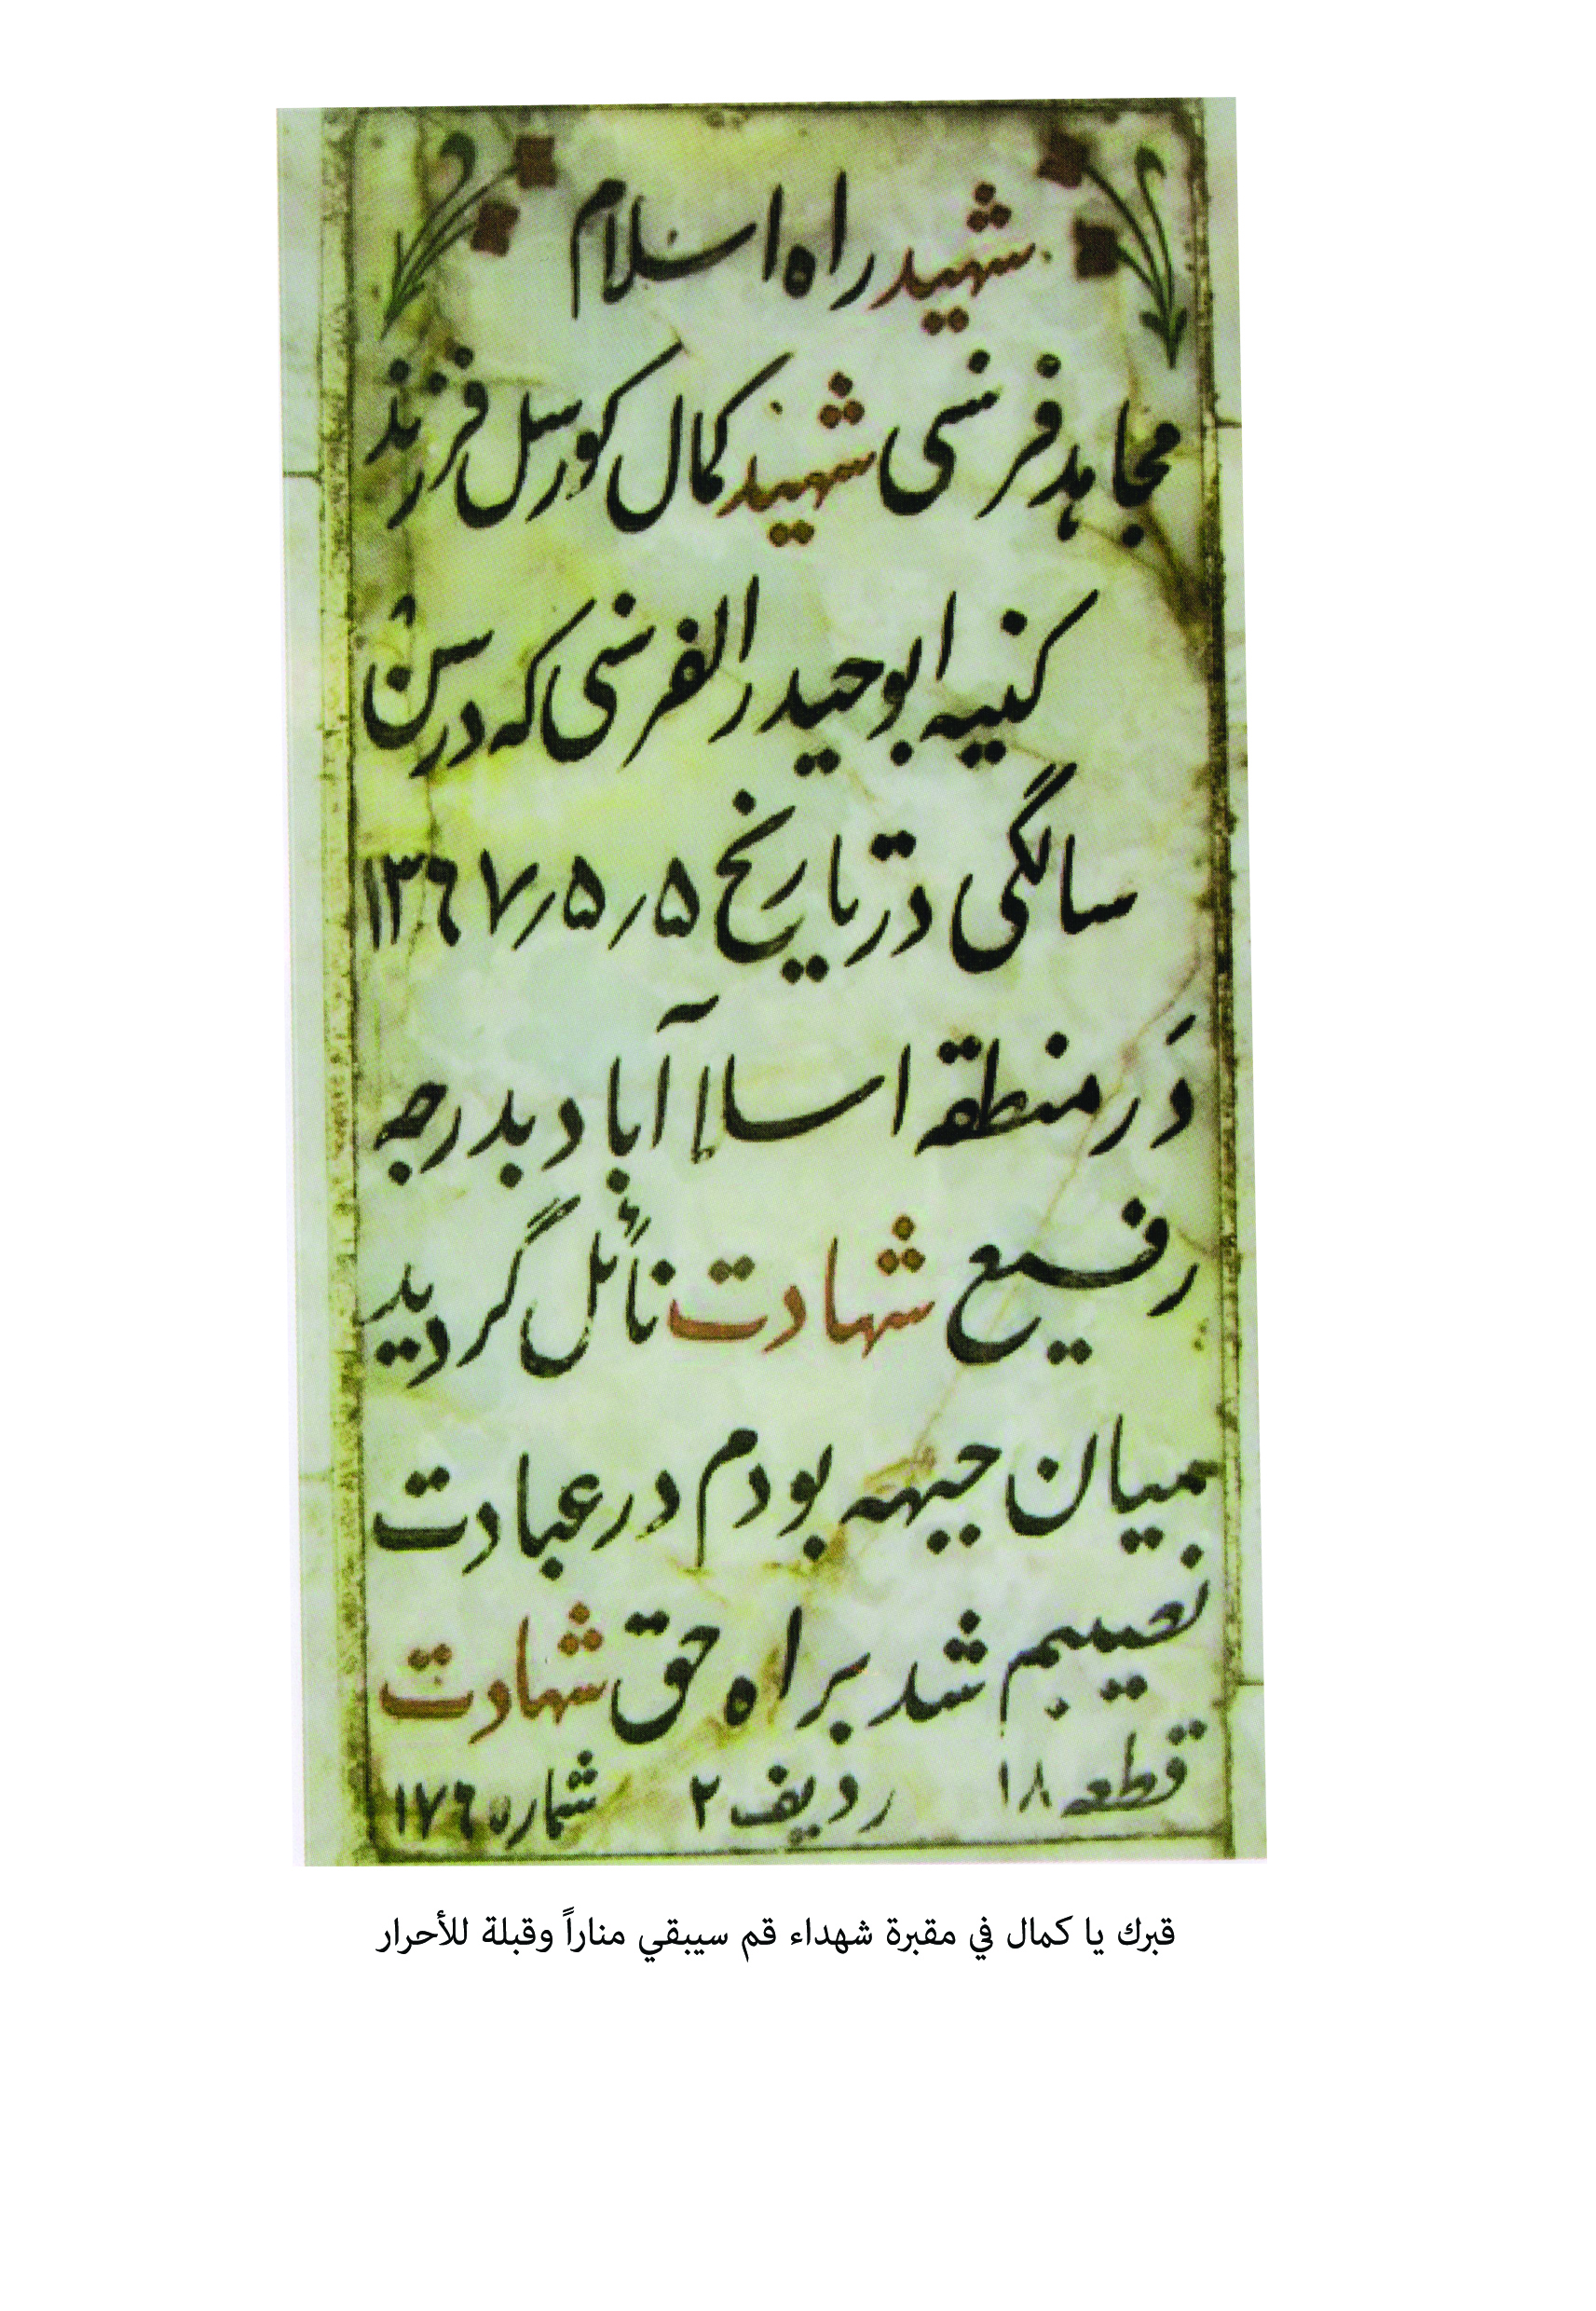 شهید راه اسلام
مجاهد فرنسی شهید کمال کورسل فرزند
کنیه ابوحیدر الفرنسی که در سن
سالگی در تاریخ ۵/۵/۱۳۶۷
در منطقه اسلام آباد بدرجه
رفیع شهادت نائل گردید
میان جبهه بودم در عبادت
نصیبم شد براه حق شهادت
قطعه ۱۸ ردیف ۲ شماره ۱۷۶
قبرك يا كمال في مقبرة شهداء قم سيبقي مناراً وقبلة للأحرار